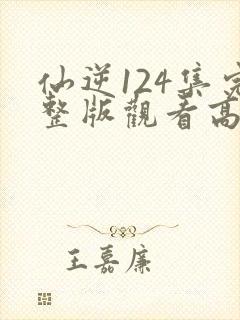 仙逆124集完
整版觀看高
王嘉廉